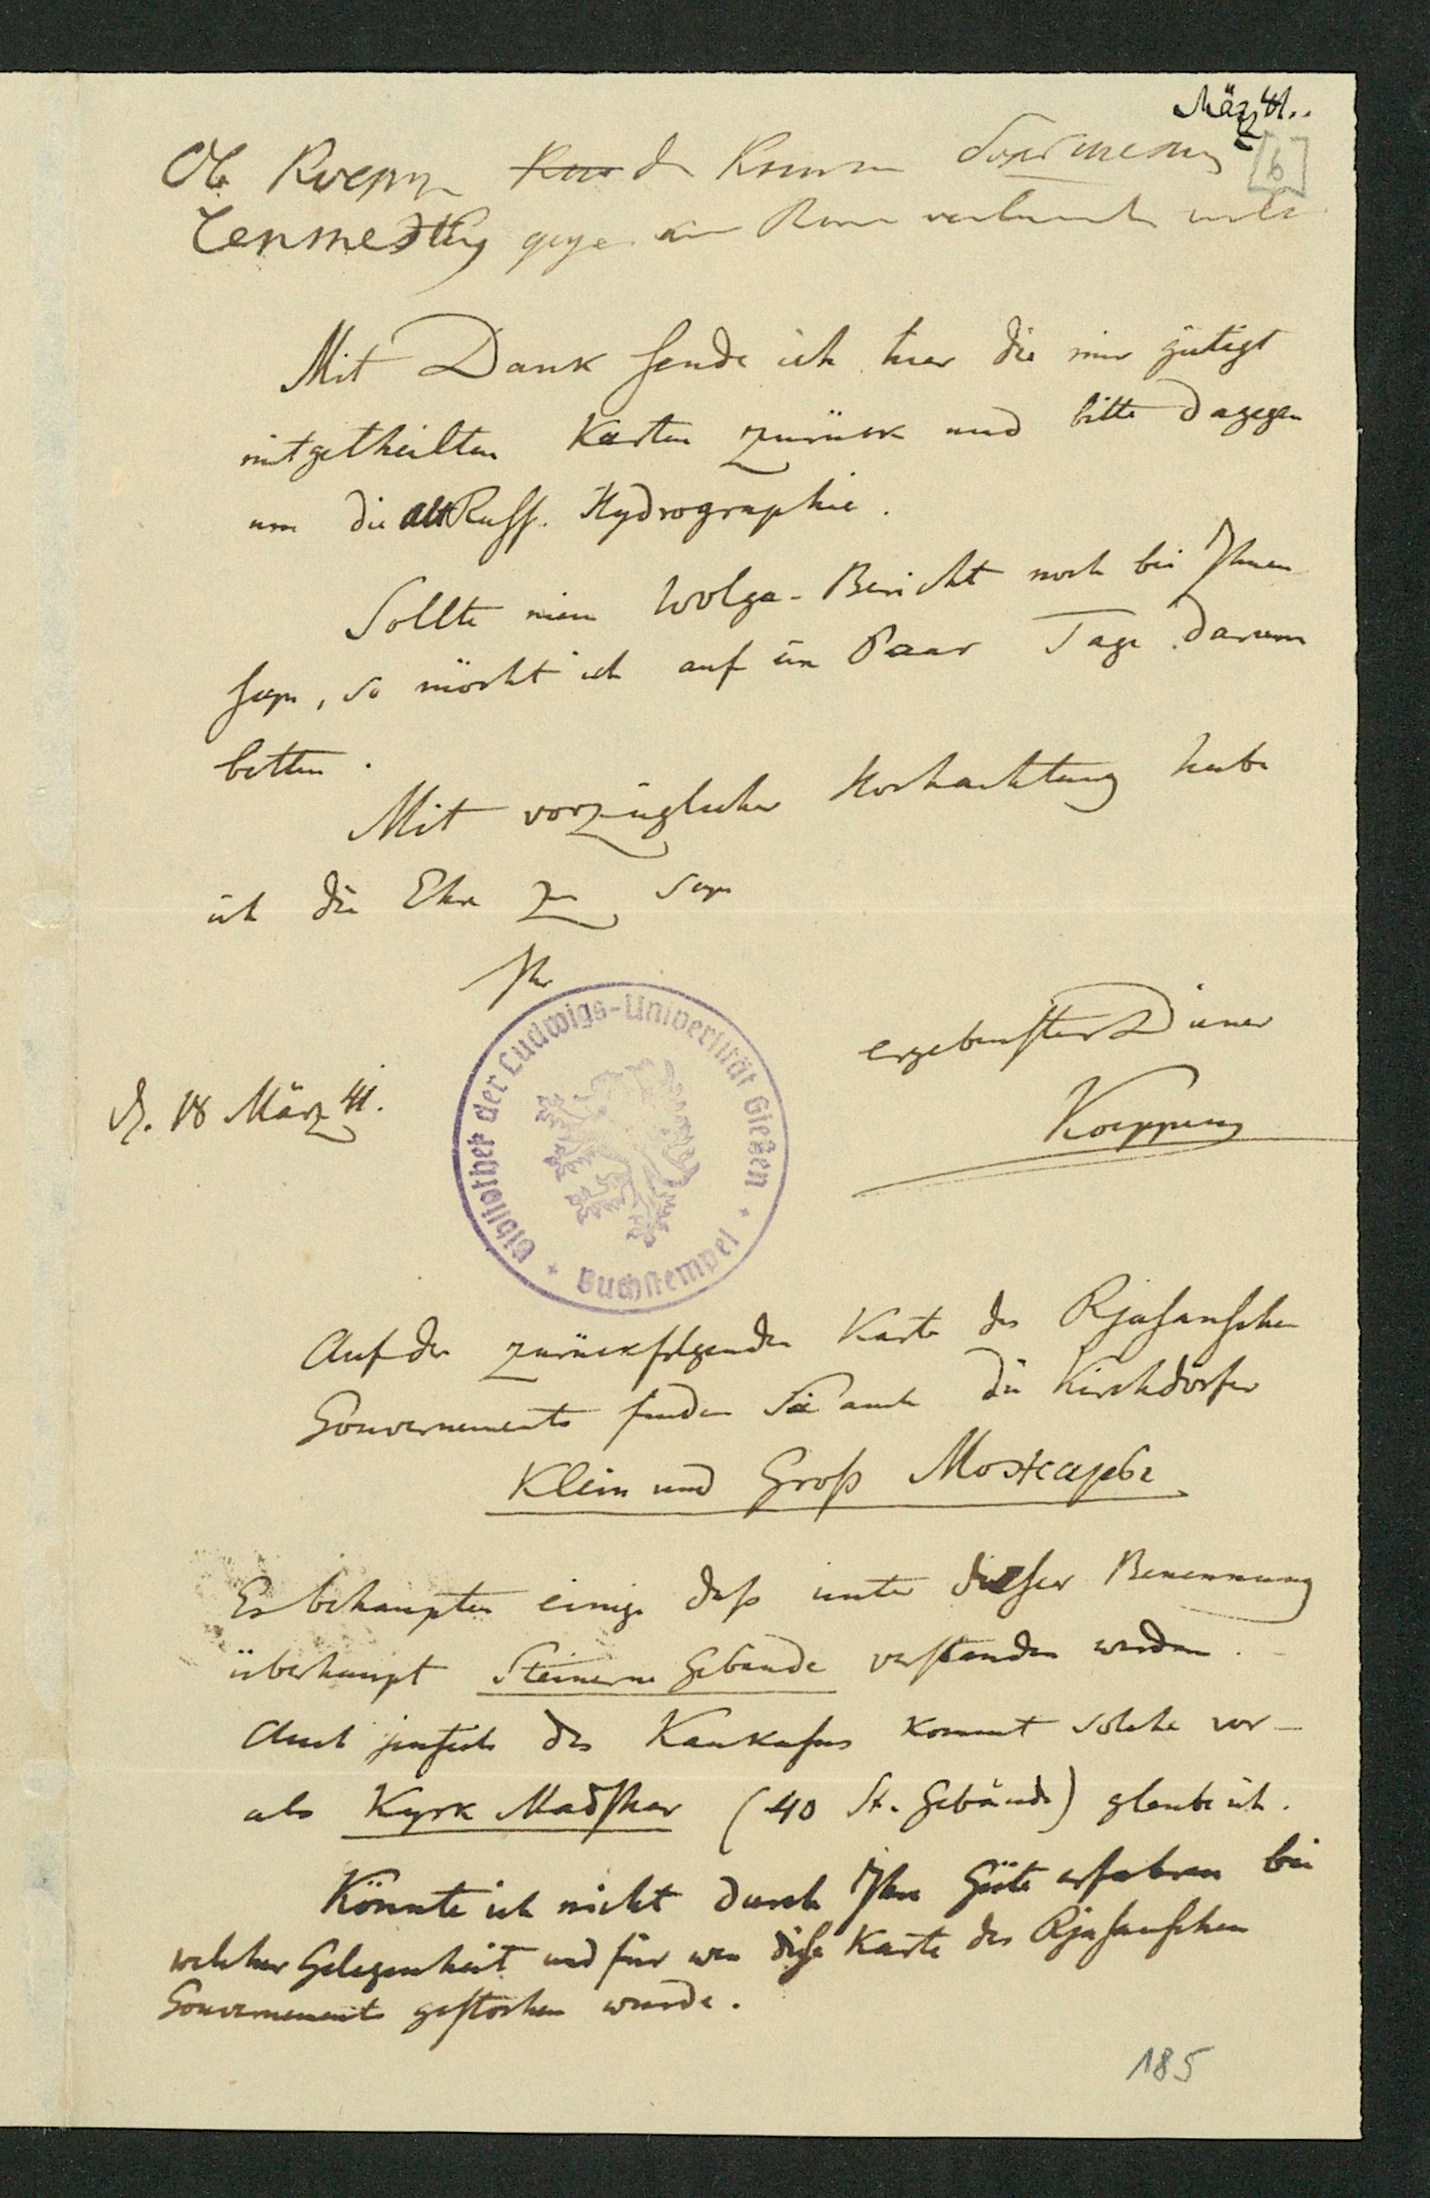 März 41..
Ob Koeppen der
[6]
gegen
Mit Dank sende ich hier die mir gütigst
mitgetheilten Karten zurück und bitte dagegen
um die alt Russ. Hydrographie.
Sollte mein Wolga-Bericht noch bei Ihnen
seyn, so möcht ich auf ein Paar Tage darum
bitten.
Mit vorzüglicher Hochachtung habe
ich die Ehre zu seyn
Ihr
ergebenster Diener
Koeppen
d. 18 März 41.
Bibliothek der Ludwigs-Universität Gießen
Buchstempel
Auf der zurückfolgenden Karte des Rjasanschen
Gouvernements finden Sie auch die Kirchdörfer
Klein und Groß Можары
Es behaupten einige daß unter dieser Benennung
überhaupt Steinerne Gebäude verstanden werden. –
Auch jenseits des Kaukasus kommt solche vor –
als Kyrk Madshar (40 St. Gebäude) glaube ich.
Könnte ich nicht durch Ihre Güte erfahren bei
welcher Gelegenheit und für wen diese Karte des Rjasanschen
Gouvernements gestochen wurde.
185